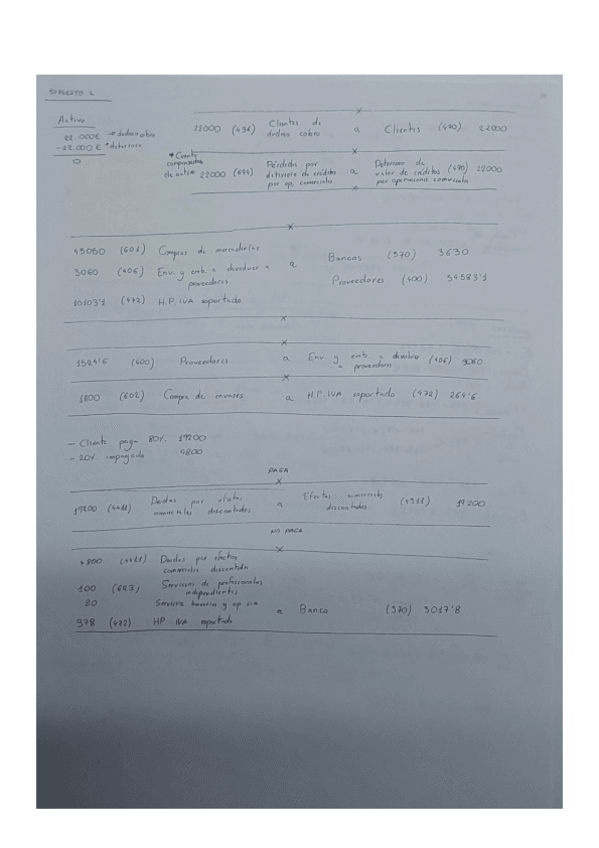 SUPUESTO 2
Activo
22.000€ → dudoso cobro
-22.000€ * deterioro
0
22000 (436) Clientes de dudoso cobro a Clientes (430) 22000
* Cuenta compensadora de activo
22000 (694) Pérdidas por deterioro de créditos por op. comerciales a Deterioro de valor de créditos (490) 22000 por operaciones comerciales
45060 (601) Compras de mercaderías
3060 (406) Env. y emb. a devolver a proveedores a Bancos (570) 3630
Proveedores (400) 54583'1
10103'1 (472) H.P. IVA soportado
1524'6 (400) Proveedores a Env y emb. a devolver a proveedores (406) 3060
1800 (602) Compra de envases a H.P. IVA soportado (472) 264'6
- Cliente paga 80% 19200
- 20% impagado 4800
PAGA
19200 Deudas por efectos comerciales descontados a Efectos comerciales descontados (4311) 19200
NO PAGA
4800 Deudas por efectos comerciales descontados
100 (623) Servicios de profesionales independientes
80 Servicios bancarios y op sim a Banco (570)
378 (472) HP IVA soportado